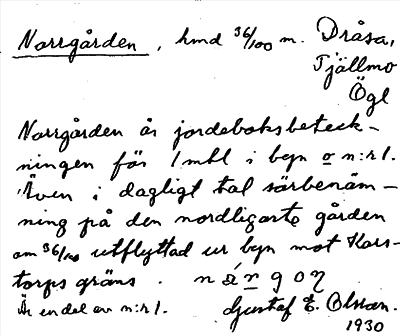 Norrgården, hmd 36/100 m. Dråsa,
Tjällmo
Ögl
Norrgården är jordeboksbeteck-
ningen för 1 mtl i byn o n:r 1.
Även i dagligt tal särbenäm-
ning på den nordligaste gården
om 36/100 utflyttad ur byn mot Kars-
torps gräns. 
Är en del av n:r 1. Gustaf E. Olsson.
1930